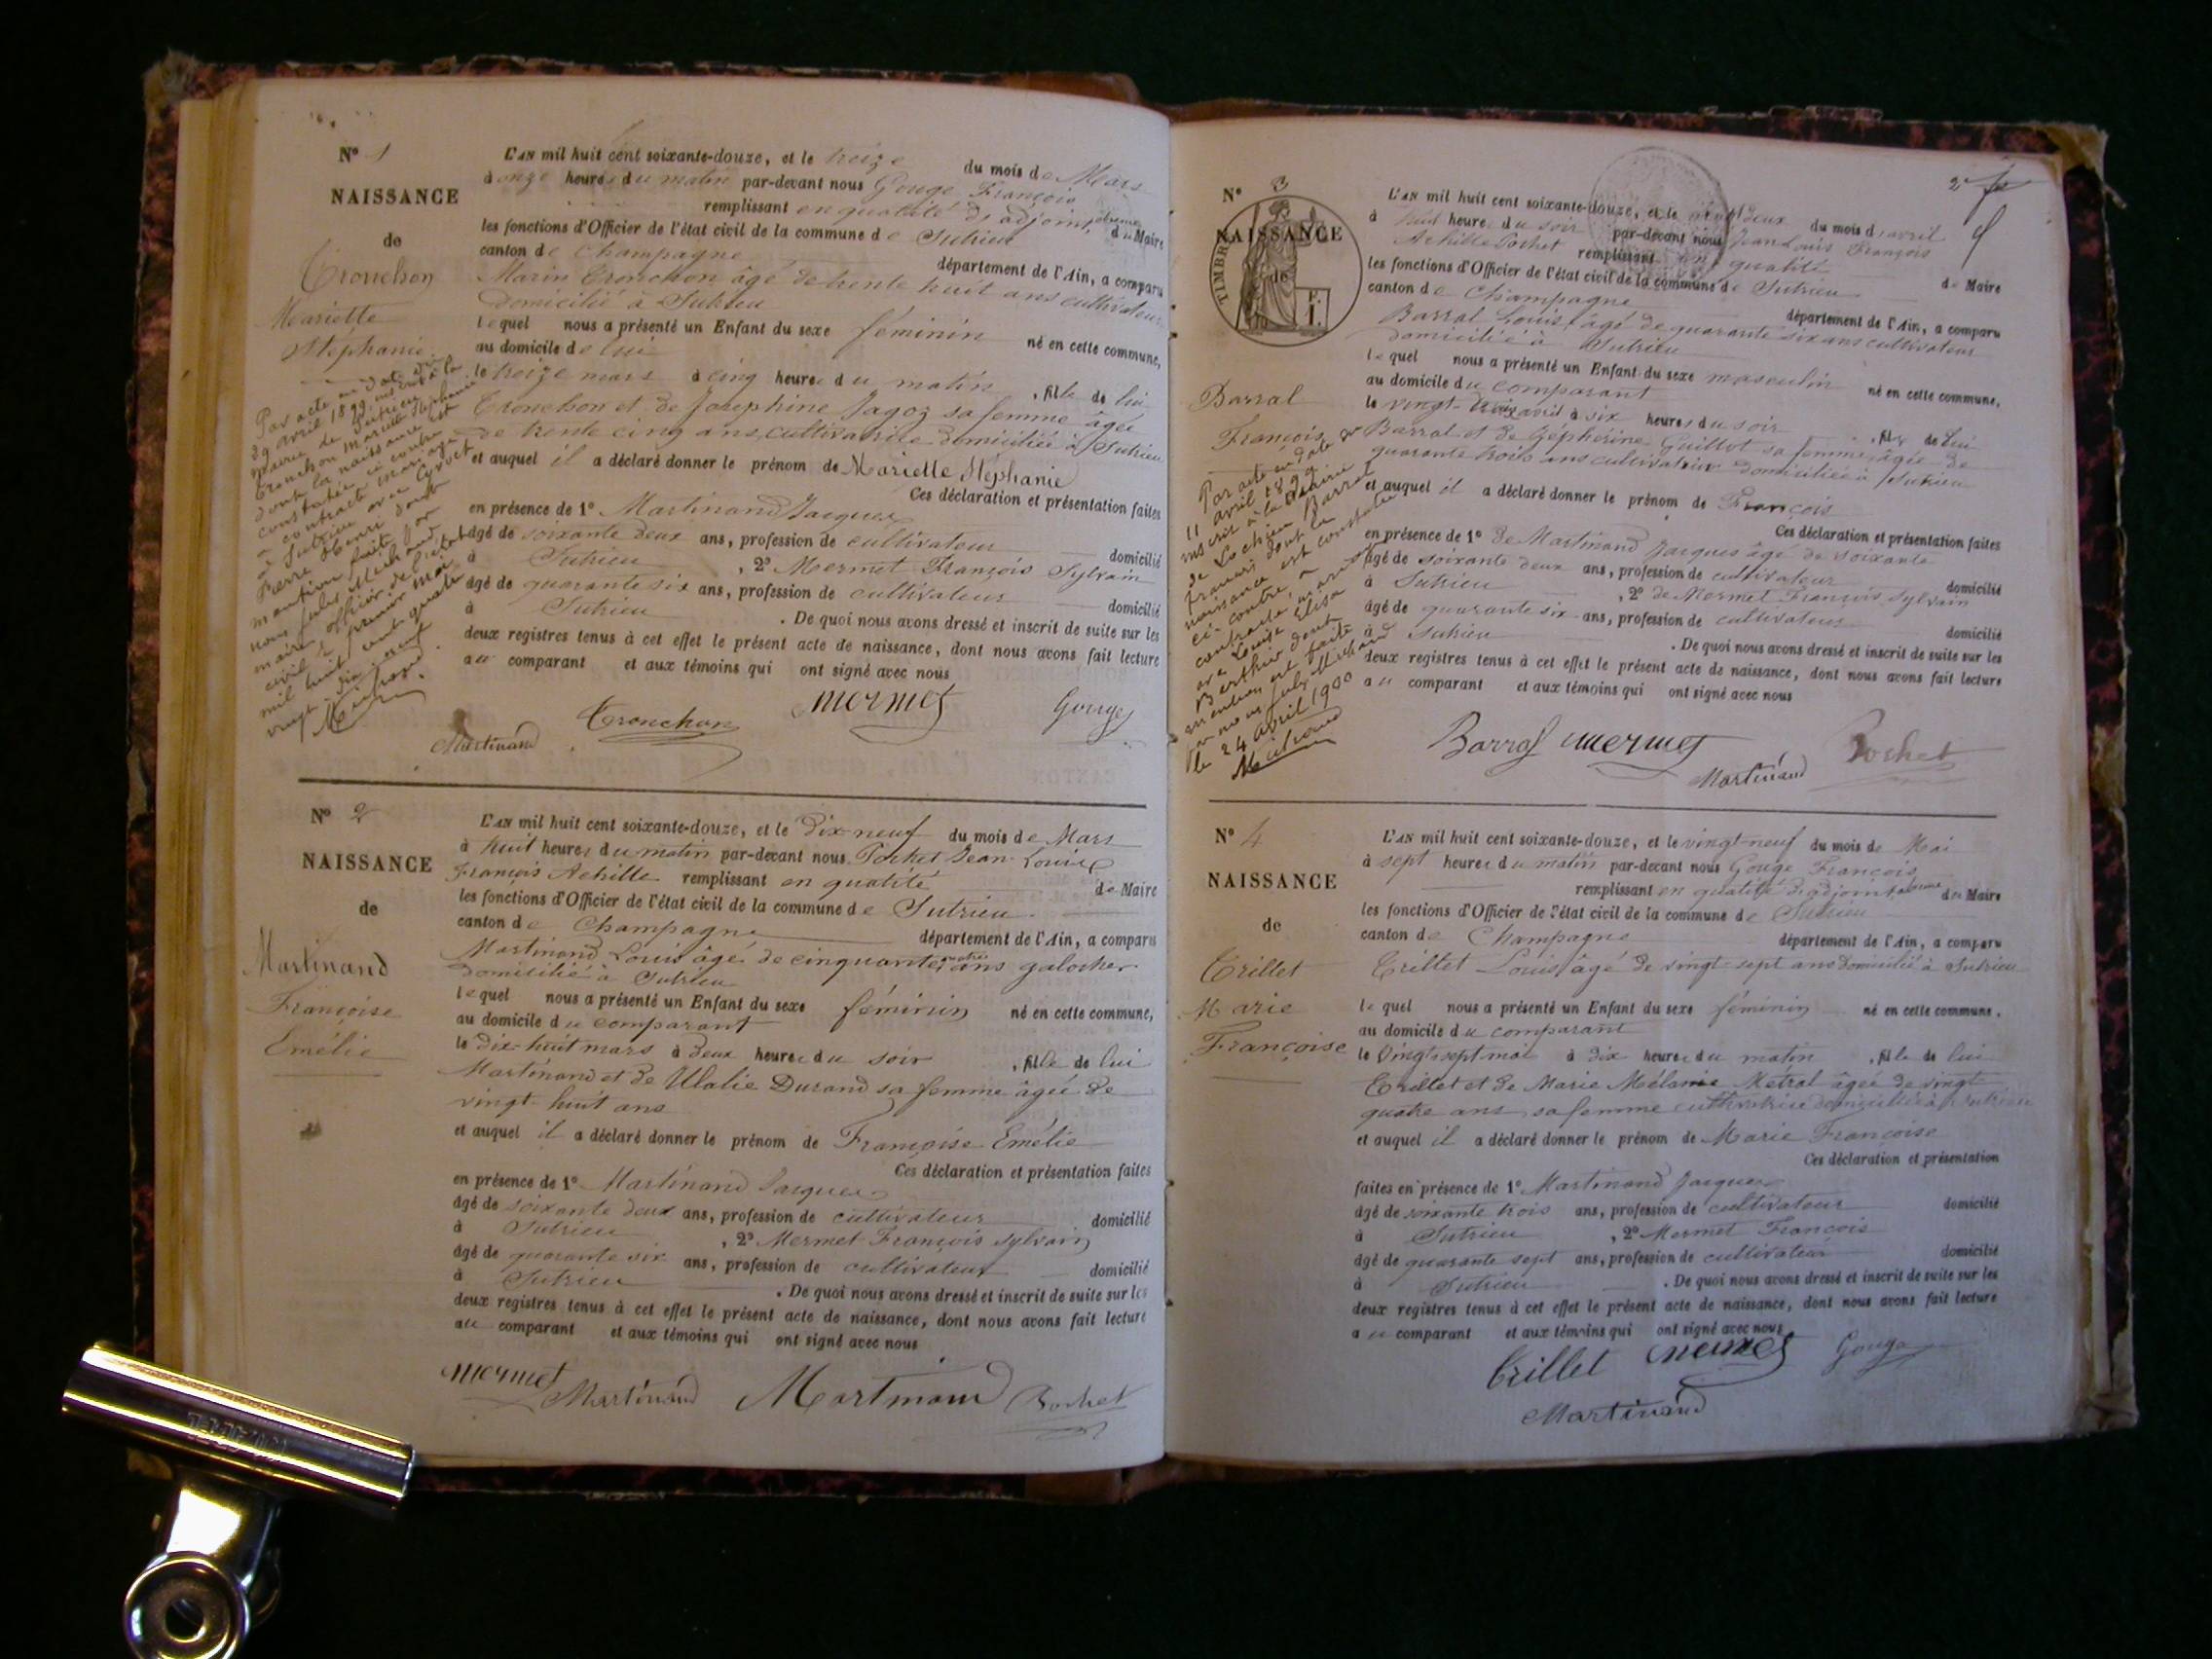 N° 1
NAISSANCE
de
Tronchon
Mariette
Stéphanie
Par acte en date du
29 avril 1899 inscrit à la
mairie de Sutrieu
Tronchon Mariette Stéphanie
dont la naissance est
constatée ci contre
a contracté mariage
à Sutrieu avec
Pierre Henri dont
mention faite par
nous Michaud
maire officier de l'état
civil le premier mai
mil huit cent quatre
vingt dix neuf
Michaud
L'AN mil huit cent soixante-douze, et le treize du mois de Mars
à onze heures du matin par-devant nous Gouge François
remplissant en qualité d'adjoint, du Maire
les fonctions d'Officier de l'état civil de la commune de Sutrieu
canton de Champagne département de l'Ain, a comparu
Marin Tronchon âgé de trente huit ans cultivateur
domicilié à Sutrieu
lequel nous a présenté un Enfant du sexe féminin né en cette commune,
au domicile de lui
le treize mars à cinq heures du matin, fille de lui
Tronchon et de Joséphine Jagoz sa femme âgée
de trente cinq ans, cultivatrice domiciliée à Sutrieu
et auquel il a déclaré donner le prénom de Mariette Stéphanie
Ces déclaration et présentation faites
en présence de 1° Martinand Jacques
âgé de soixante deux ans, profession de cultivateur domicilié
à Sutrieu, 2° Mermet François Sylvain
âgé de quarante six ans, profession de cultivateur domicilié
à Sutrieu. De quoi nous avons dressé et inscrit de suite sur les
deux registres tenus à cet effet le présent acte de naissance, dont nous avons fait lecture
au comparant et aux témoins qui ont signé avec nous
Martinand Tronchon Mermet Gouge
N° 2
NAISSANCE
de
Martinand
Françoise
Emélie
L'AN mil huit cent soixante-douze, et le dix-neuf du mois de Mars
à huit heures du matin par-devant nous Pochet Jean Louis
François Achille remplissant en qualité de Maire
les fonctions d'Officier de l'état civil de la commune de Sutrieu
canton de Champagne département de l'Ain, a comparu
Martinand Louis âgé de cinquante ans galocher
domicilié à Sutrieu
lequel nous a présenté un Enfant du sexe féminin né en cette commune,
au domicile du comparant
le dix-huit mars à deux heures du soir, fille de lui
Martinand et de Ulalie Durand sa femme âgée de
vingt huit ans
et auquel il a déclaré donner le prénom de Françoise Emélie
Ces déclaration et présentation faites
en présence de 1° Martinand Jacques
âgé de soixante deux ans, profession de cultivateur domicilié
à Sutrieu, 2° Mermet François Sylvain
âgé de quarante six ans, profession de cultivateur domicilié
à Sutrieu. De quoi nous avons dressé et inscrit de suite sur les
deux registres tenus à cet effet le présent acte de naissance, dont nous avons fait lecture
au comparant et aux témoins qui ont signé avec nous
Mermet Martinand Martinand Pochet
2e
N° 3
NAISSANCE
de
TIMBRE
Barral
François
Par acte en date du
11 avril 1899
inscrit à la Mairie
de Lochieu Barral
François dont la
naissance est constatée
ci-contre, a
contracté mariage
avec Louise Elisa
Berthier dont
mention est faite
par nous July Michaud
le 24 avril 1900
Michaud
L'AN mil huit cent soixante-douze, et le vingt deux du mois d'avril
à huit heures du soir par-devant nous Jean Louis François
Achille Pochet remplissant en qualité de Maire
les fonctions d'Officier de l'état civil de la commune de Sutrieu
canton de Champagne département de l'Ain, a comparu
Barral Louis, âgé de quarante six ans cultivateur
domicilié à Sutrieu
lequel nous a présenté un Enfant du sexe masculin né en cette commune,
au domicile du comparant
le vingt avril à six heures du soir, fils de lui
Barral et de Guillot sa femme, âgée de
quarante trois ans cultivatrice domiciliée à Sutrieu
et auquel il a déclaré donner le prénom de François
Ces déclaration et présentation faites
en présence de 1° de Martinand Jacques âgé de soixante
âgé de soixante deux ans, profession de cultivateur domicilié
à Sutrieu, 2° de Mermet François Sylvain
âgé de quarante six ans, profession de cultivateur domicilié
à Sutrieu. De quoi nous avons dressé et inscrit de suite sur les
deux registres tenus à cet effet le présent acte de naissance, dont nous avons fait lecture
au comparant et aux témoins qui ont signé avec nous
Barral Mermet Martinand Pochet
N° 4
NAISSANCE
de
Trillet
Marie
Françoise
L'AN mil huit cent soixante-douze, et le vingt-neuf du mois de Mai
à sept heures du matin par-devant nous Gouge François
remplissant en qualité d'adjoint, du Maire
les fonctions d'Officier de l'état civil de la commune de Sutrieu
canton de Champagne département de l'Ain, a comparu
Trillet Louis, âgé de vingt-sept ans domicilié à Sutrieu
lequel nous a présenté un Enfant du sexe féminin né en cette commune,
au domicile du comparant
le vingt-sept mai à dix heures du matin, fille de lui
Trillet et de Marie Mélanie Métral âgée de vingt
quatre ans sa femme cultivatrice domiciliée à Sutrieu
et auquel il a déclaré donner le prénom de Marie Françoise
Ces déclaration et présentation
faites en présence de 1° Martinand Jacques
âgé de soixante trois ans, profession de cultivateur domicilié
à Sutrieu, 2° Mermet François
âgé de quarante sept ans, profession de cultivateur domicilié
à Sutrieu. De quoi nous avons dressé et inscrit de suite sur les
deux registres tenus à cet effet le présent acte de naissance, dont nous avons fait lecture
au comparant et aux témoins qui ont signé avec nous
Trillet Mermet Gouge
Martinand